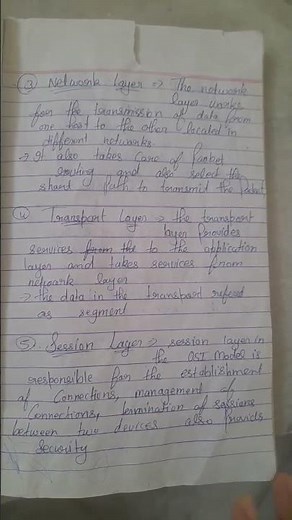 ③ Network Layer → The network
layer works
for the transmission of data from
one host to the other located in
different networks
→ It also takes care of Packet
routing and also select the
short path to transmit the Packet
④ Transport Layer → the transport
layer Provides
services from the to the application
layer and takes services from
network layer
→ the data in the transport refered
as segment
⑤ Session Layer → session layer in
the OSI Model is
responsible for the establishment
of Connections, management of
Connections, termination of sessions
between two devices also Provids
security